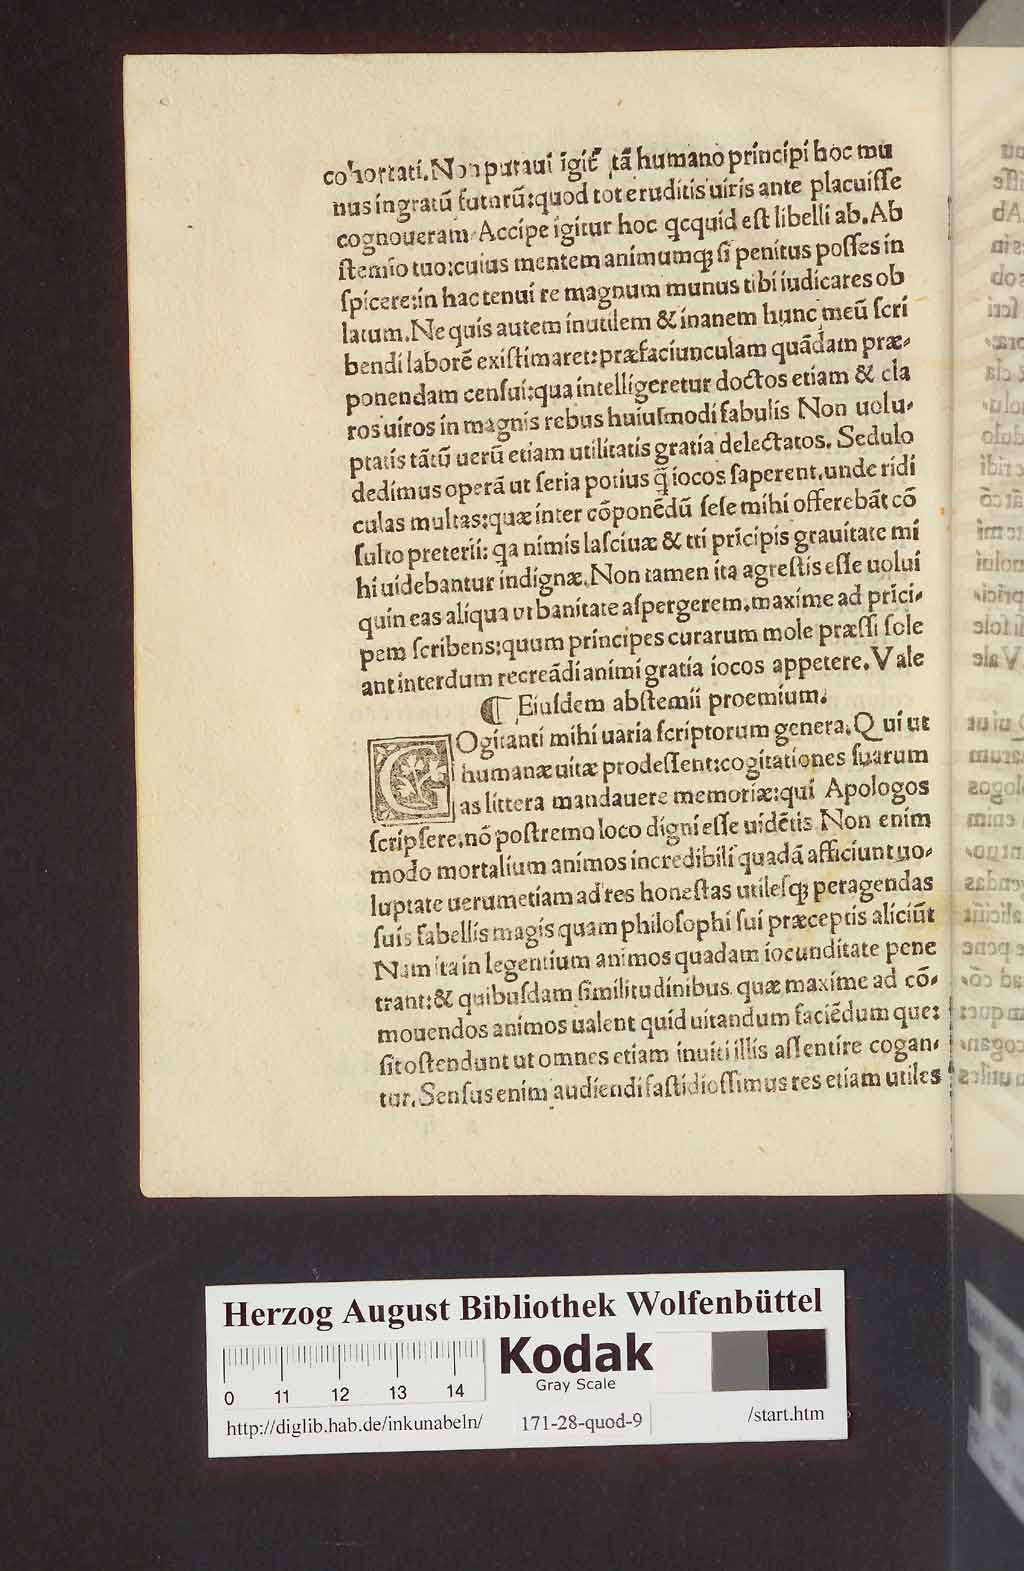 cohortati. Non putaui igit᷑ tā humano principi hoc mu
nus ingratū futurū: quod tot eruditis uiris ante placuiſſe
cognoueram. Accipe igitur hoc qcquid eſt libelli ab. Ab
ſtemio tuo: cuius mentem animumqꝫ ſi penitus poſſes in
ſpicere: in hac tenui re magnum munus tibi iudicares ob
latum. Ne quis autem inutilem & inanem hunc meū ſcri
bendi laborē exiſtimaret: præfaciunculam quādam præ⸗
ponendam cenſui: qua intelligeretur doctos etiam & cla
ros uiros in magnis rebus huiuſmodi fabulis Non uolu⸗
ptatis tātū uerū etiam utilitatis gratia delectatos. Sedulo
dedimus operā ut ſeria potius q̄ iocos ſaperent. unde ridi
culas multas: quæ inter cōponēdū ſeſe mihi offerebāt cō
ſulto preterii: qa nimis laſciuæ & tti pricipis grauitate mi
hi uidebantur indignæ. Non tamen ita agreſtis eſſe uolui
quin eas aliqua urbanitate aſpergerem. maxime ad prici⸗
pem ſcribens: quum principes curarum mole præſſi ſole
ant interdum recreādi animi gratia iocos appetere. Vale
¶ Eiuſdem abſtemii proemium.
COgitanti mihi uaria ſcriptorum genera. Qui ut
humanæ uitæ prodeſſent: cogitationes ſuarum
as littera mandauere memoriæ: qui Apologos
ſcripſere. nō poſtremo loco digni eſſe uidētis Non enim
modo mortalium animos incredibili quadā afficiunt uo⸗
luptate uerumetiam ad res honeſtas utileſqꝫ peragendas
ſuis fabellis magis quam philoſophi ſui præceptis aliciūt
Nam ita in legentium animos quadam iocunditate pene
trant: & quibuſdam ſimilitudinibus quæ maxime ad cō⸗
mouendos animos ualent quid uitandum faciēdum que:
ſit oſtendunt ut omnes etiam inuiti illis aſſentire cogan⸗
tur. Senſus enim audiendi faſtidioſſimus res etiam utiles
Herzog August Bibliothek Wolfenbüttel
Kodak
Gray Scale
0 11 12 13 14
http://diglib.hab.de/inkunabeln/ 171-28-quod-9 /start.htm